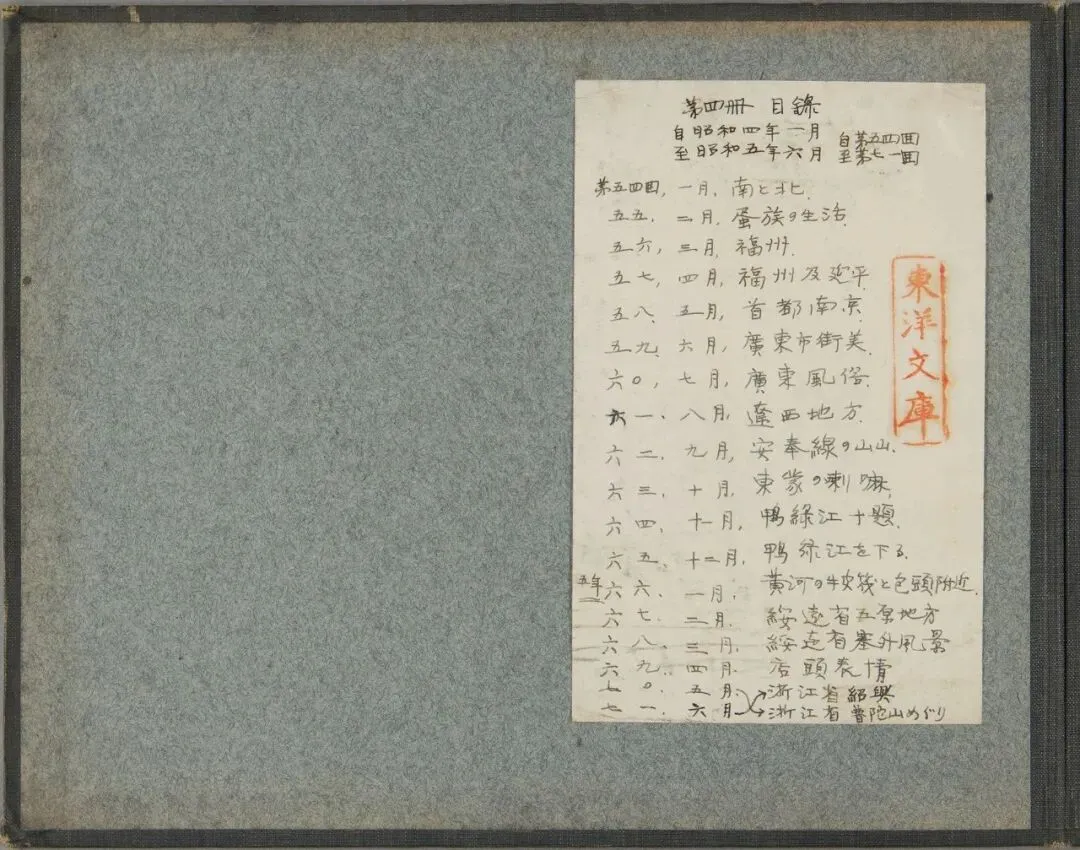 第四冊 目錄
自昭和四年一月 自第五四囬
至昭和五年六月 至第七一囬
第五四囬, 一月, 南と北.
五五. 二月. 蛋族の生活.
五六, 三月, 福州.
五七, 四月, 福州及延平.
五八. 五月, 首都南京.
五九. 六月, 廣東市街美.
六〇, 七月, 廣東風俗.
六一. 八月, 遼西地方.
六二. 九月, 安奉線の山山.
六三. 十月. 東蒙の喇嘛.
六四. 十一月, 鴨綠江十題.
六五. 十二月. 鴨綠江を下る.
五年 六六. 一月. 黃河の牛皮筏と包頭附近.
六七. 二月. 綏遠省五原地方
六八. 三月. 綏遠省塞外風景
六九. 四月. 店頭表情
七〇. 五月. 浙江省紹興
七一. 六月 浙江省普陀山めぐり
東洋文庫